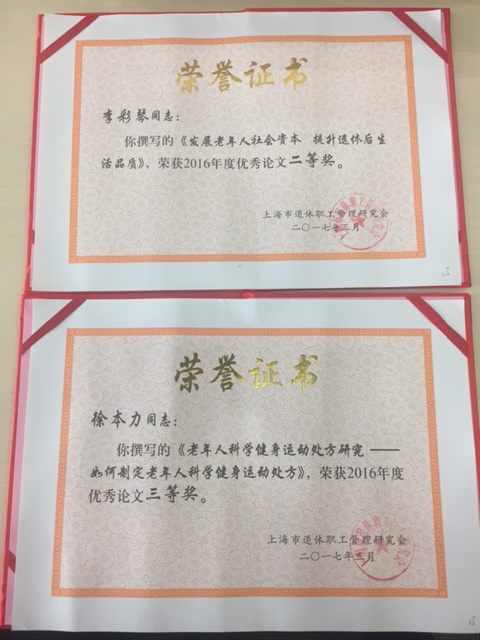 荣誉证书
李彩琴同志：
你撰写的《发展老年人社会资本 提升退休后生
活品质》，荣获2016年度优秀论文二等奖。
上海市退休职工管理研究会
二〇一七年三月
荣誉证书
徐本力同志：
你撰写的《老年人科学健身运动处方研究——
如何制定老年人科学健身运动处方》，荣获2016年度
优秀论文三等奖。
上海市退休职工管理研究会
二〇一七年三月